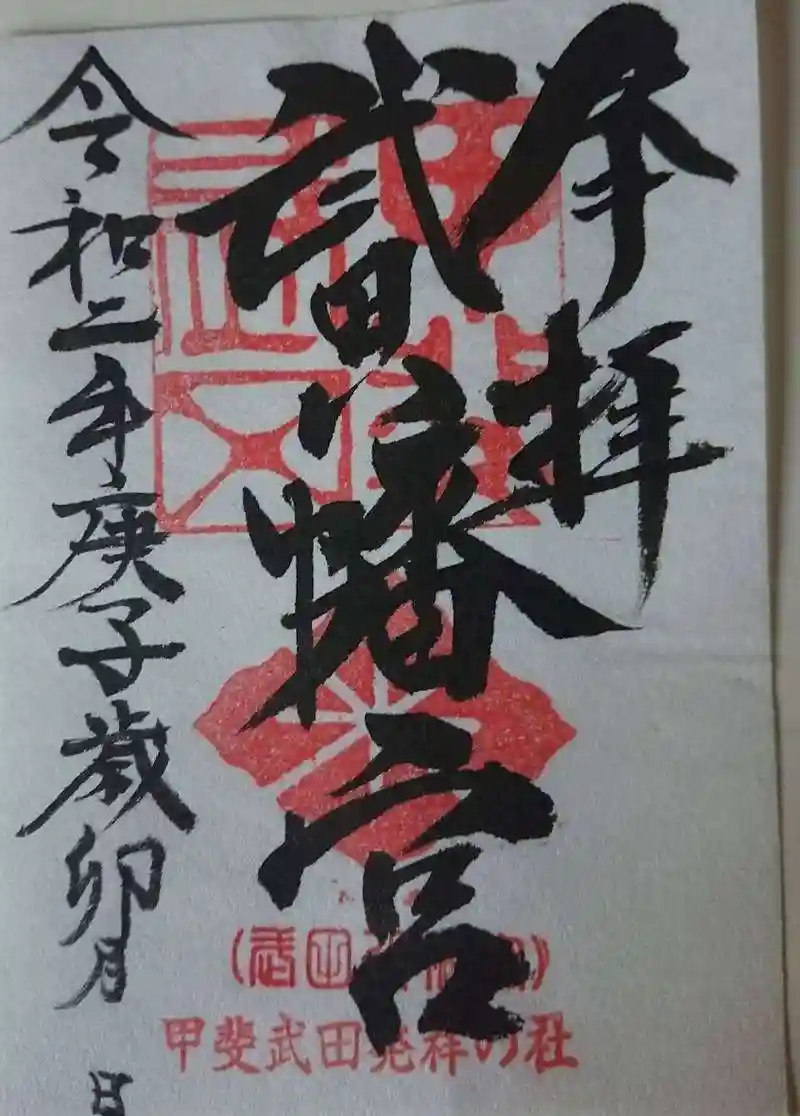 奉拝
武田八幡宮
令和二年庚子歳卯月 日
甲斐武田発祥の社